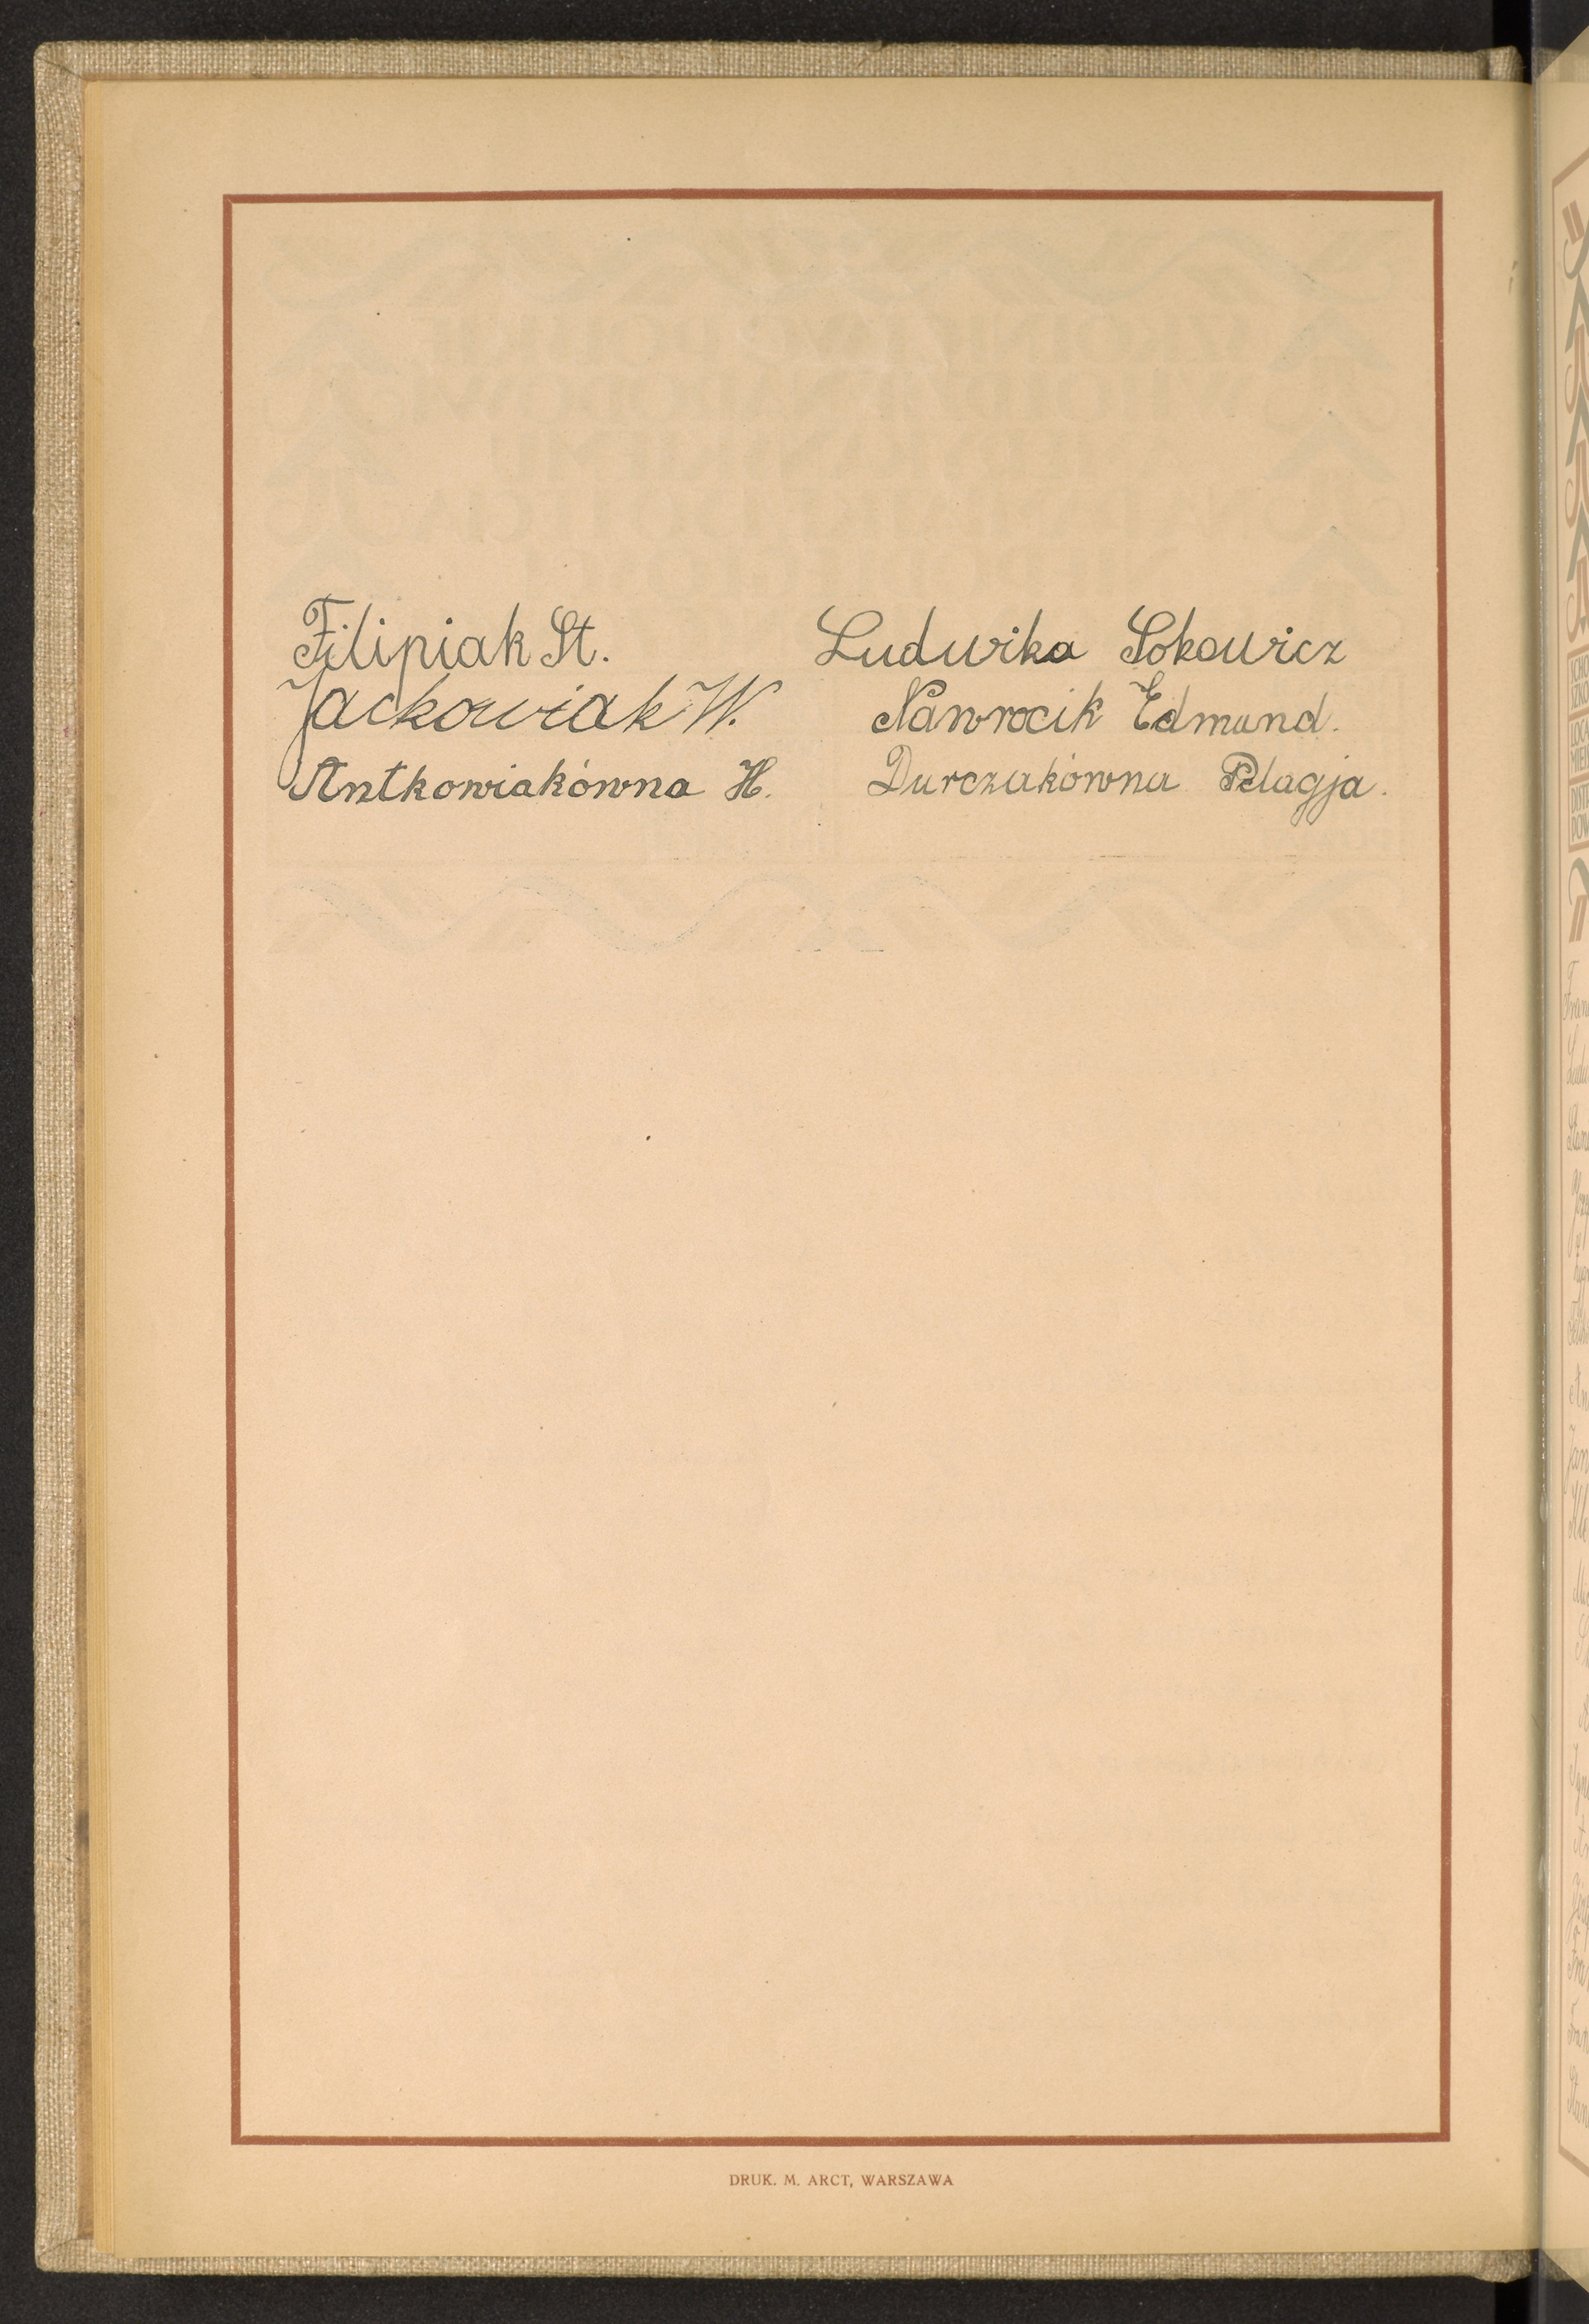 Filipiak St.
Jackowiak W.
Antkowiakówna H.
Ludwika Sokowicz
Nawrocik Edmund.
Durczakówna Pelagja.
DRUK. M. ARCT, WARSZAWA